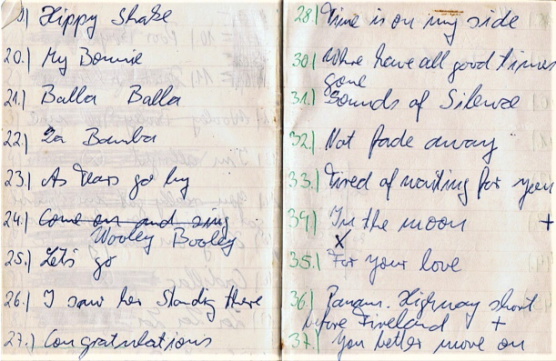 Hippy Shake
20.) My Bonnie
21.) Balla Balla
22.) La Bamba
23.) As Tears go by
24.) Come on and sing
Wooley Booley
25.) Let's go
26.) I saw her standing there
27.) Congratulations
28.) Time is on my side
30.) Where have all good times
gone
31.) Sounds of Silence
32.) Not fade away
33.) Tired of waiting for you
34.) In the moon +
X
35.) For your love
36.) Panam. Highway short
before Fireland +
37.) You better move on